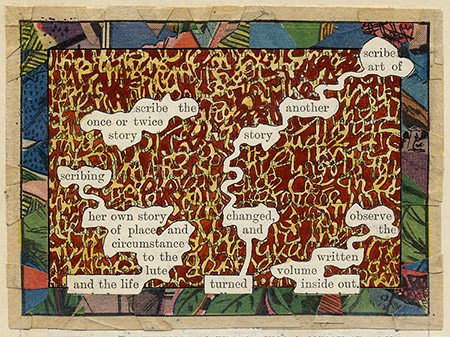 scribe
art of
scribe the another
once or twice
story story
scribing
her own story changed, observe
of place and and the
circumstance
to the written
lute volume
and the life turned inside out.